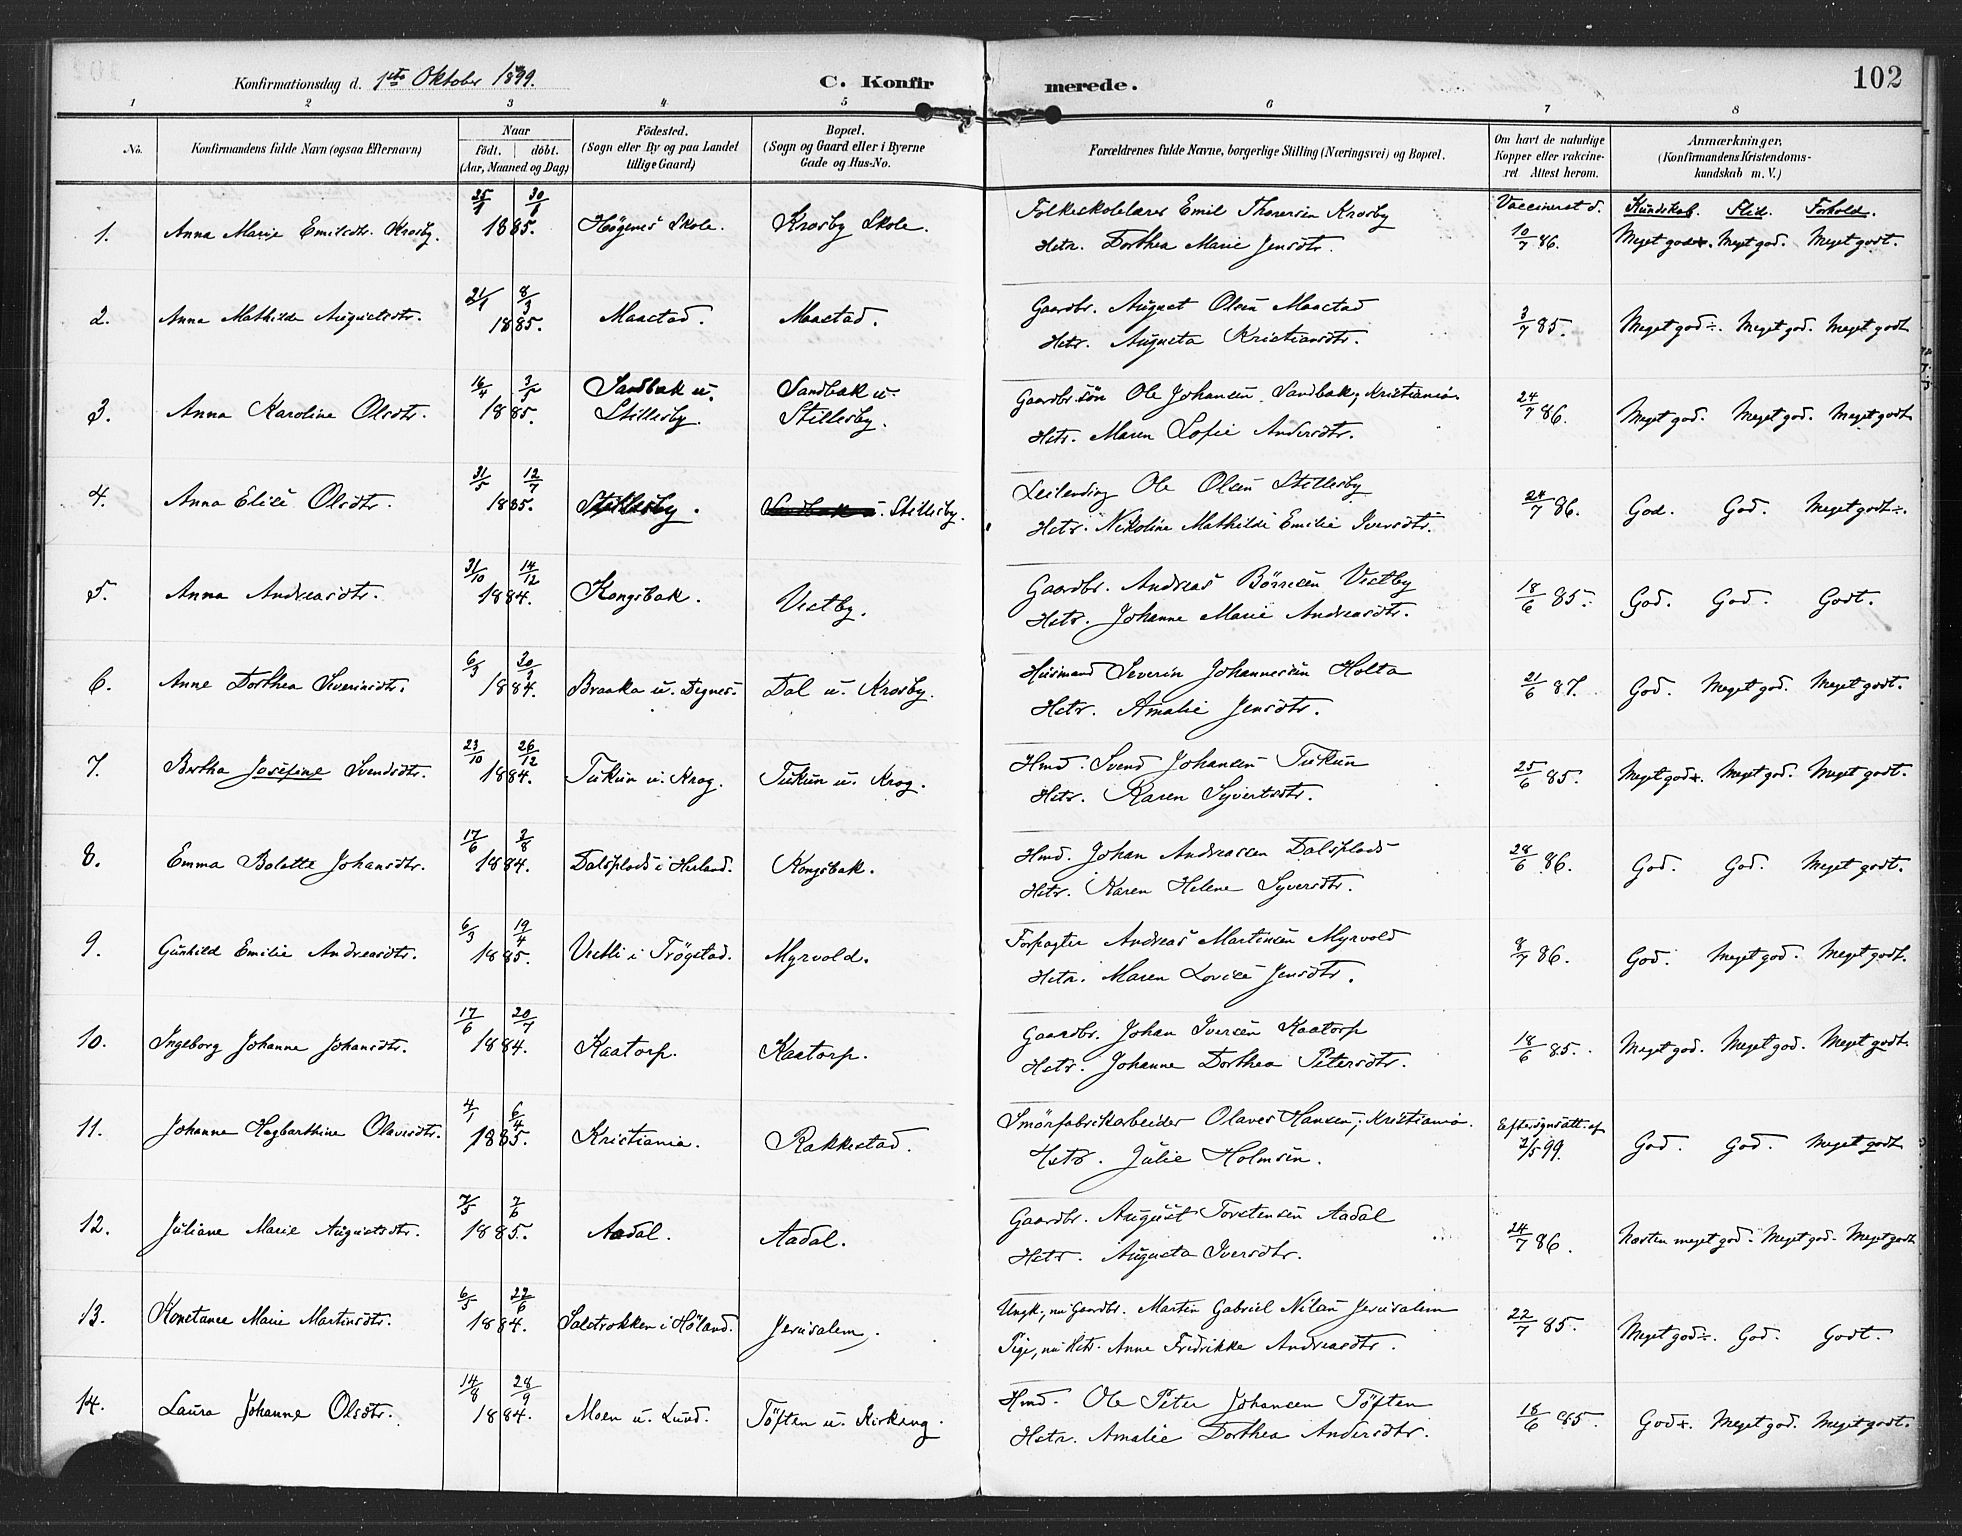 Konfirmationsdag d. 1ste Oktober 1899. C. Konfirmerede. 102
1 2 3 4 5 6 7 8
No. Konfirmandens fulde Navn (ogsaa Efternavn) Naar födt. döbt. (Aar, Maaned og Dag) Födested. (Sogn eller By og paa Landet tillige Gaard) Bopæl. (Sogn og Gaard eller i Byerne Gade og Hus-No. Forældrenes fulde Navne, borgerlige Stilling (Næringsvei) og Bopæl. Om havt de naturlige Kopper eller vakcineret Attest herom. Anmærkninger, (Konfirmandens Kristendomskundskab m. V.)
Vaccineret d. Kundskab. Flid. Forhold.
1. Anna Marie Emilsdtr. Krosby. 25/1 30/6 1885. Høgenes Skole. Krosby Skole. Folkeskolelærer Emil Thoresen Krosby
Hstr. Dorthea Marie Jensdtr. 10/7 86. Meget god+. Meget god. Meget godt.
2. Anna Mathilde Augustsdtr. 21/1 8/3 1885. Maastad. Maastad. Gaardbr. August Olsen Maastad
Hstr. Augusta Kristiansdtr. 3/7 85. Meget god÷. Meget god. Meget godt
3. Anna Karoline Olsdtr. 16/4 3/5 1885. Sandbak u. Stillesby. Sandbak u. Stillesby. Gaardbr.søn Ole Johansen Sandbak, Kristiania.
Hstr. Maren Sofie Andersdtr. 24/7 86. Meget god. Meget god. Meget godt
4. Anna Elise Olsdtr. 31/5 12/7 1885. Stillesby. Sandbak u. Stillesby. Leilending Ole Olsen Stillesby
Hstr. Nikoline Mathilde Emilie Iversdtr. 24/7 86. God. God. Meget godt÷.
5. Anna Andreasdtr. 31/10 14/12 1884. Kongsbak. Vestby. Gaardbr. Andreas Börresen Vestby
Hstr. Johanne Marie Andreasdtr. 18/6 85. God. God. Godt.
6. Anne Dorthea Severinsdtr. 6/3 1884. Braaka u. Degnes. Dal u. Krosby. Husmand Severin Johannessen Holta
Hstr. Amalie Jensdtr. 21/6 87. God. Meget god. Meget godt.
7. Bertha Josefine Svendsdtr. 23/10 26/12 1884. Tukun u. Krog. Tukun u. Krog. Hmd. Svend Johansen Tukun
Hstr. Karen Syvertsdtr. 25/6 85. Meget god+. Meget god. Meget godt.
8. Emma Bolette Johansdtr. 17/6 3/8 1884. Dalsplads i Herland. Kongsbak. Hmd. Johan Andreassen Dalsplads
Hstr. Karen Helene Syversdtr. 28/6 86. God. God. Meget godt.
9. Gunhild Emilie Andreasdtr. 6/3 19/4 1885. Vestli i Trögstad. Myrvold. Forpagter Andreas Martinsen Myrvold
Hstr. Maren Lovise Jensdtr. 8/7 86. God. Meget god. Meget godt.
10. Ingeborg Johanne Johansdtr. 17/6 20/7 1884. Kaatorp. Kaatorp. Gaardbr. Johan Iversen Kaatorp
Hstr. Johanne Dorthea Petersdtr. 18/6 85. Meget god. Meget god. Meget godt.
11. Johanne Hagbarthine Olavesdtr. 4/1 6/4 1885. Kristiania. Rakkestad. Smörfabrikarbeider Olaves Hansen, Kristiania.
Hstr. Julie Holmsen. Eftersynsatt. af 2/5 99. God. God. Meget godt
12. Juliane Marie Augustsdtr. 7/5 7/6 1885. Aadal. Aadal. Gaardbr. August Torstensen Aadal
Hstr. Augusta Iversdtr. 24/7 86. Næsten meget god. Meget god. Meget godt
13. Konstance Marie Martinsdtr. 6/5 22/6 1884. Salstrokken i Höland. Jerusalem. Ungk., nu Gaardbr. Martin Gabriel Nilsen Jerusalem
Pige, nu Hstr. Anne Fredrikke Andreasdtr. 22/7 85. Meget god÷. God. Godt.
14. Laura Johanne Olsdtr. 14/8 28/9 1884. Moen u. Lund. Töften u. Kirkeng. Hmd. Ole Peter Johansen Töften
Hstr. Amalie Dorthea Andersdtr. 18/6 85. God+. Meget god. Meget godt.